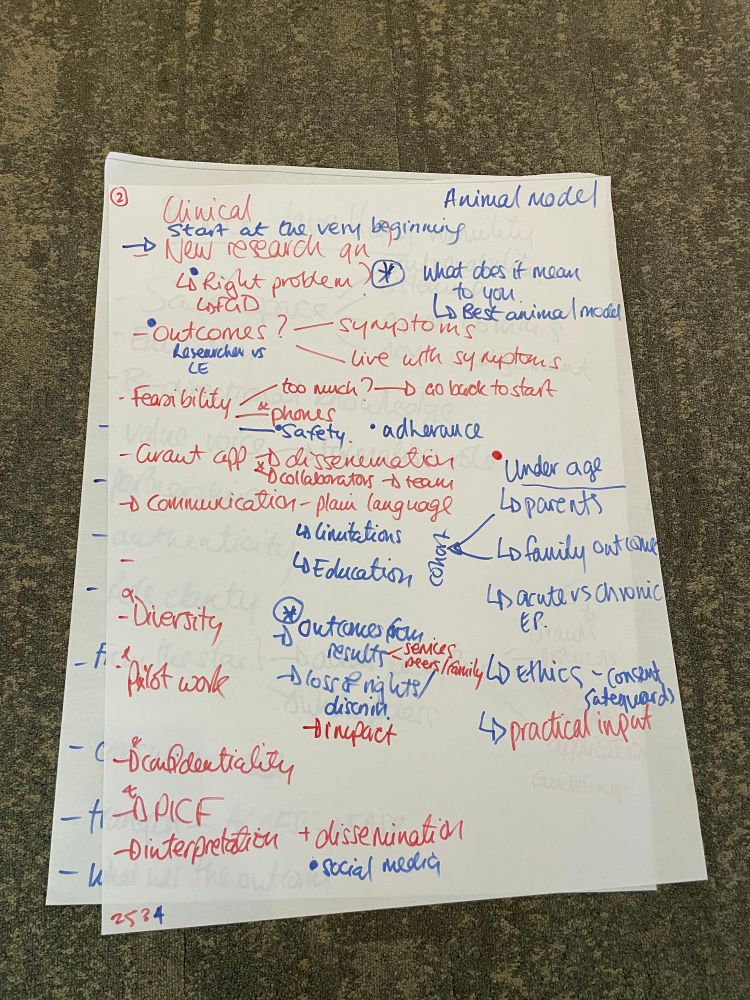 ②
Clinical
Animal model
Start at the very beginning
→ New research qn
↳ Right problem?
↳ fGID
* What does it mean
to you
↳ Best animal model
- outcomes? — symptoms
— live with symptoms
Researcher vs
LE
- Feasibility
too much? → go back to start
* phones
• Safety • adherance
- Grant app → dissemination
* → collaborators → team
→ communication - plain language
↳ limitations
↳ Education
• Under age
↳ parents
cohort
↳ family outcome
↳ acute vs chronic
EP.
↳ Ethics - consent
safeguards
↳ practical input
-
- Diversity
* → outcomes from
results
services
peers/family
→ loss of rights/
discrim.
→ impact
* Pilot work
→ confidentiality
→ PICF
→ interpretation + dissemination
• social media
2534